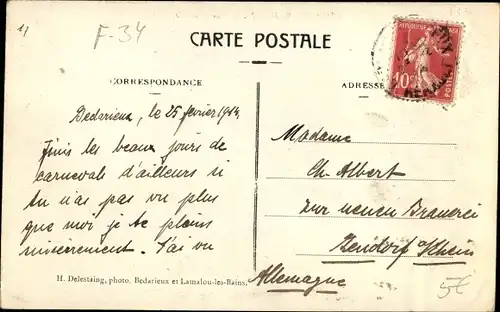 F-34
CARTE POSTALE
CORRESPONDANCE
ADRESSE
10c
POSTES
Bedarieux, le 25 février 1914
Finis les beaux jours de
carnevals d'ailleurs si
tu n'as pas vu plus
que moi je te plains
sincèrement. J'ai vu
Madame
Ch. Albert
zur neuen Brauerei
Bendorf Rhein
Allemagne
H. Delestaing, photo, Bedarieux et Lamalou-les-Bains.
5€